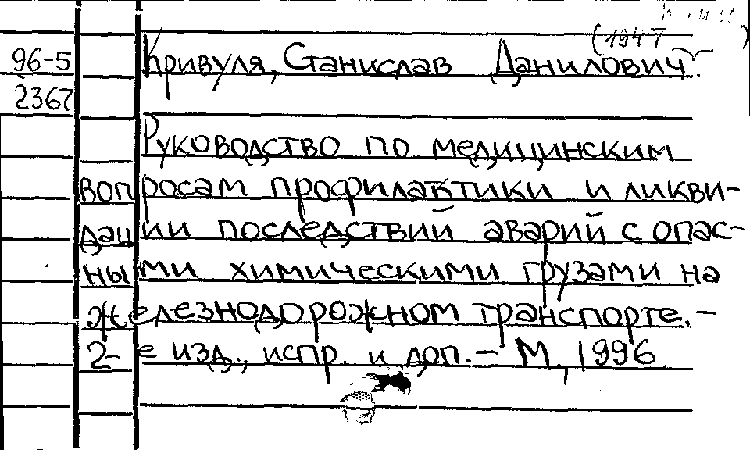 (1947 )
96-5 Кривуля, Станислав Данилович.
2367
Руководство по медицинским
вопросам профилактики и ликви-
дации последствий аварий с опас-
ными химическими грузами на
железнодорожном транспорте. -
2-е изд., испр. и доп. - М, 1996